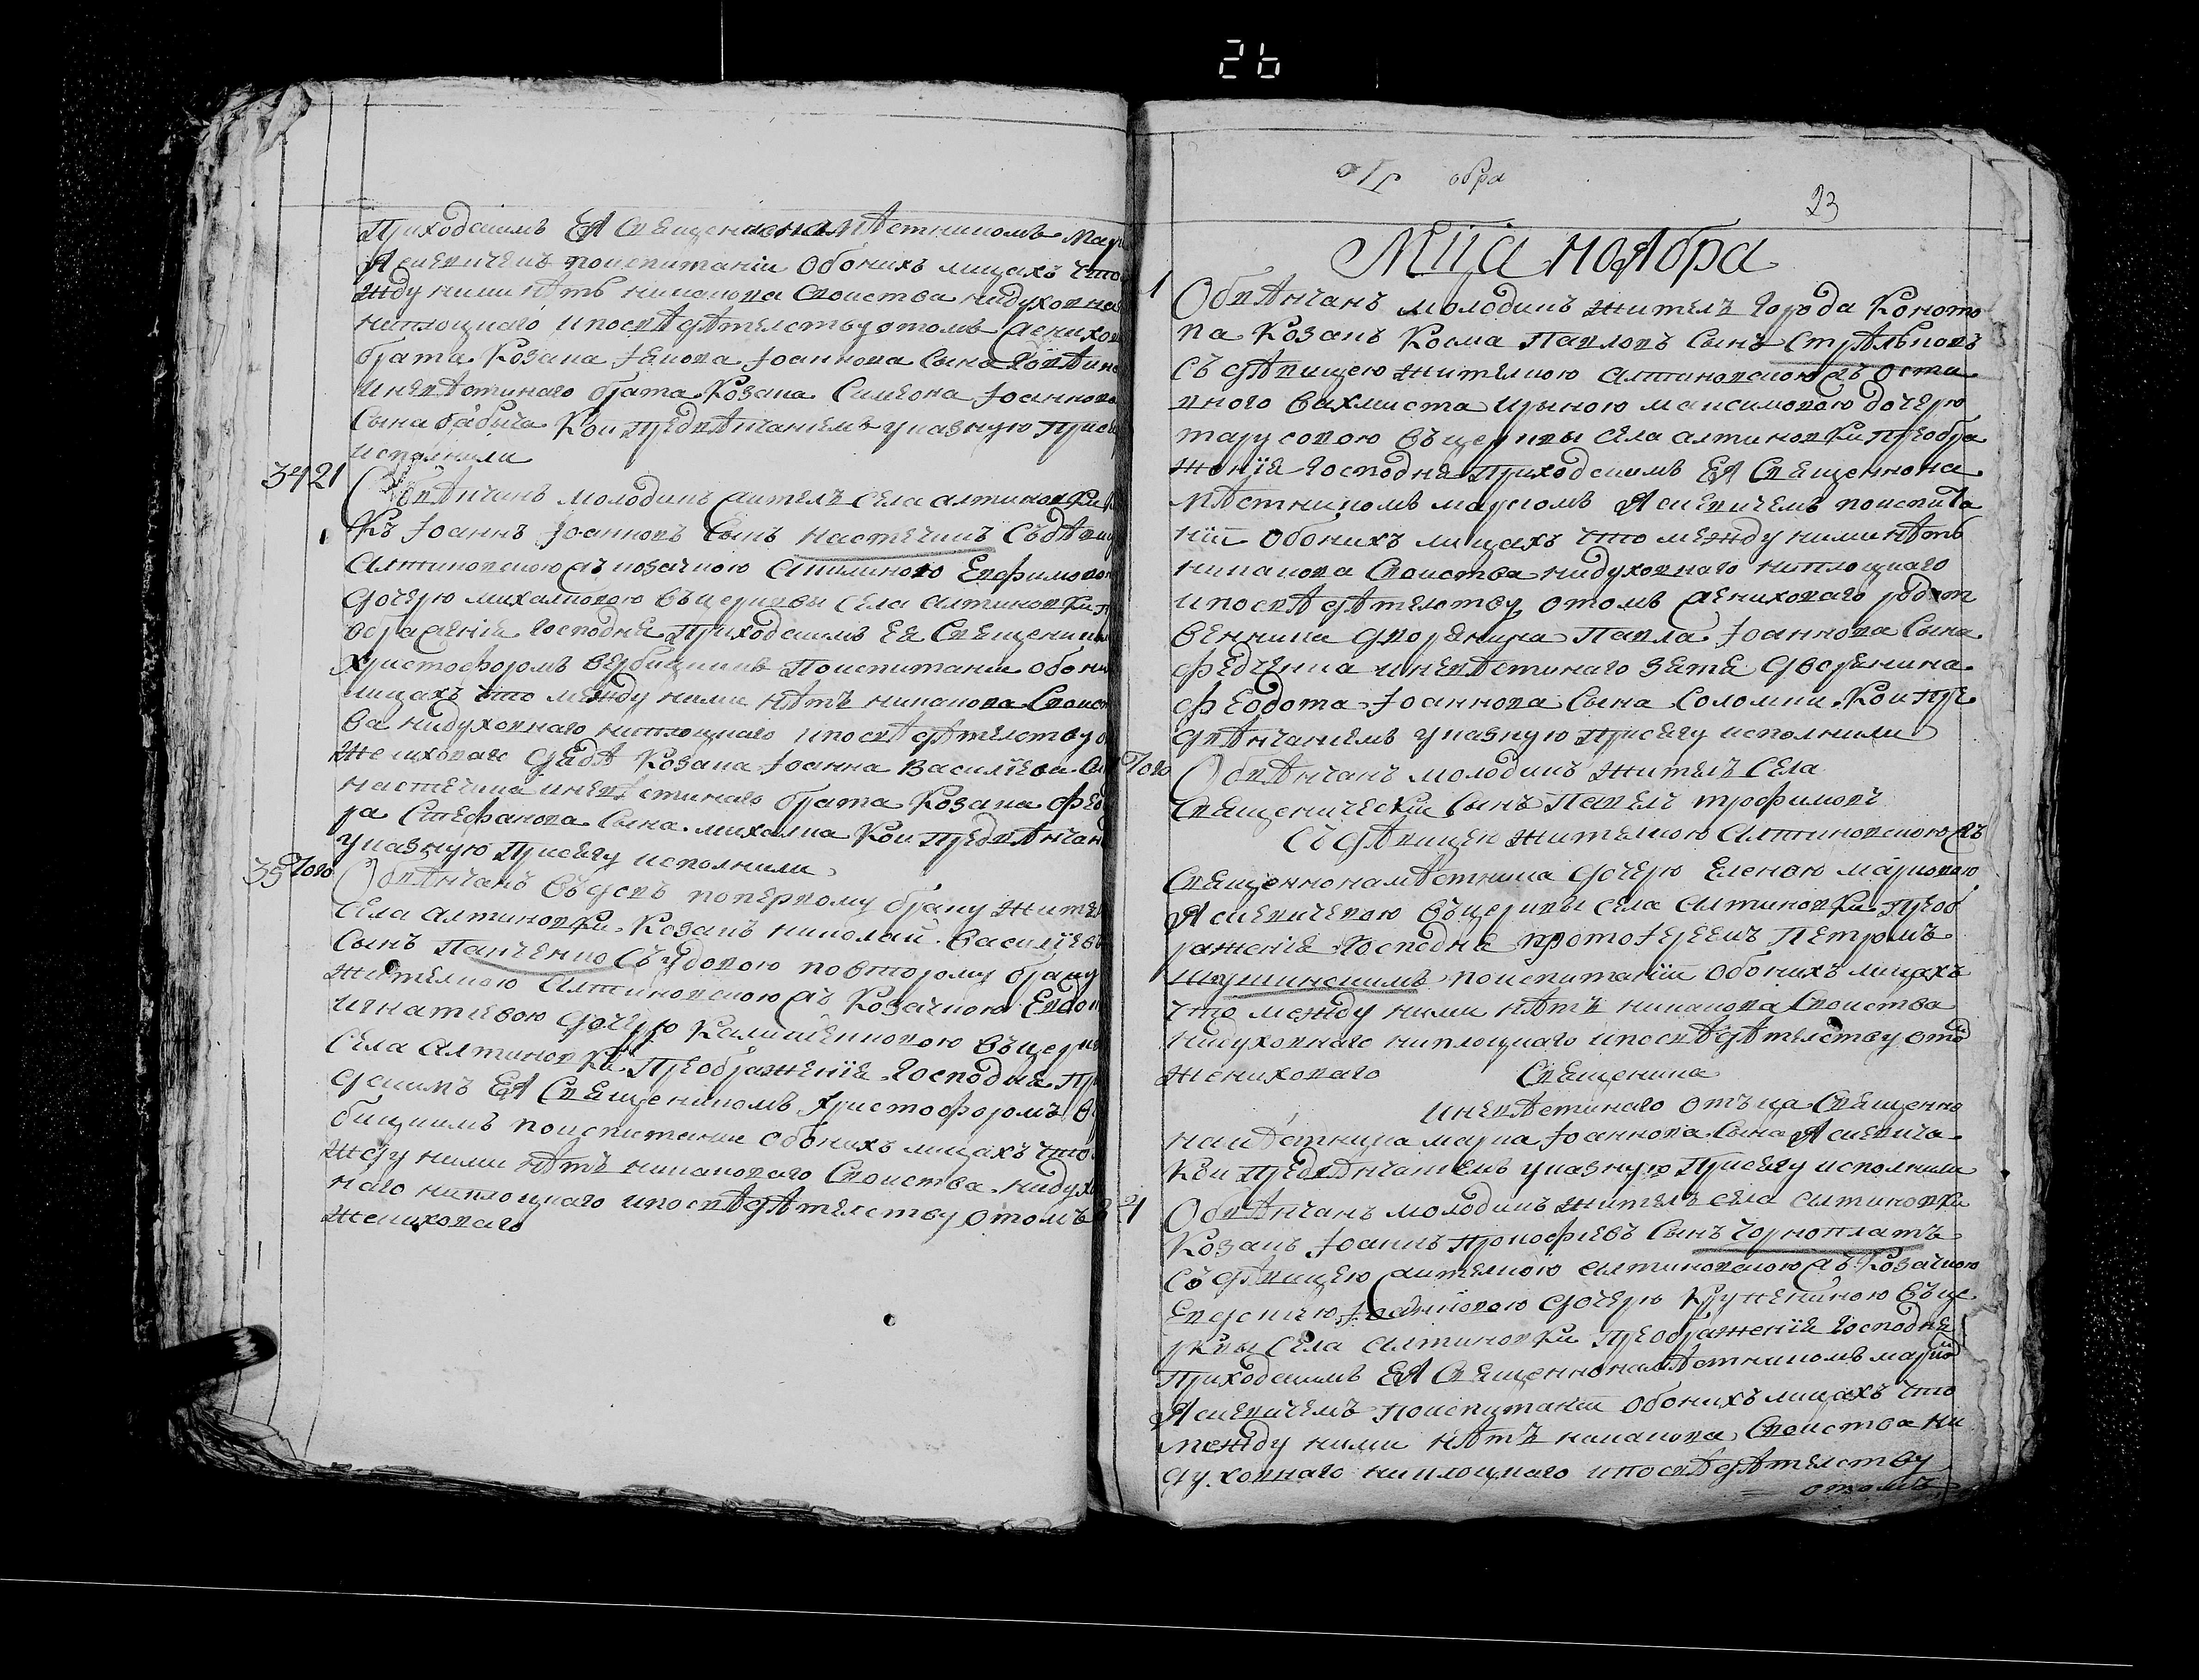 26
Приходскимъ Ея Священнонамѣстникомъ Мар
Ясиевичемъ поиспитанiи Обонихъ лицахъ что
жду ними нѣтъ никакова Своиства нидуховна
ниплоцкаго ипосвѣдѣтелству отомъ женихов
брата Козака Iакова Iоаннова Сына
иневѣстинаго брата Козака Симеона Iоаннова
Сына бабича Кои предвѣнчаниемъ указную Прися
исполнили
34 21 Обвѣнчанъ молодикъ жителъ Села алтиновки
къ Iоаннъ Iоанновъ Сынъ настечикъ Съдѣвиц
Алтиновскою жъ козачкою Акилиною Евфимово
дочерю михалковою въцерквы Села алтиновки п
ображенiя Господня Приходскимъ Ея Священник
Христофоромъ вербицкимъ Поиспитании обони
лицахъ что между ними нѣтъ никакова Своист
ва нидуховнаго ниплоцкаго ипосвѣдѣтелству о
Жениховаго дѣда Козака Iоанна Василiева Си
настечика иневѣстинаго брата Козака Фед
ра Стефанова Сына михалка Кои Предвѣнчан
указную Присягу исполнили
35 Того Обвѣнчанъ въдовъ поперкому браку жител
Села алтиновки Козакъ николай Василiевъ
Сынъ Панченко Съ удовою повторому браку
жителкою Алтиновскою жъ Козачкою Евдок
игнатиевою дочерю Калишенковою въцеркв
Села Алтиновки Преображения Господня Пр
дскимъ Ея Священникомъ Христофоромъ Ве
бицкимъ поиспитании обонихъ лицахъ что
жду ними нѣтъ никаковаго Своиства нидухо
наго ниплоцкаго ипосвѣдѣтелству отомъ
жениховаго
обра
23
Мца ноября
1 Обвѣнчанъ молодикъ жителъ Города Коното
па Козакъ Косма Павловъ Сынъ Стрѣлковъ
Съ дѣвицею жителкою алтиновскою жъ оста
вного Вахмиста Ириною максимовою дочерю
тарусовою въцерквы села алтиновки преобра
жения Господня Приходскимъ Ея Священнона
мѣстникомъ маркомъ Ясиевичемъ поиспита
нiи Обонихъ лицахъ что между ними нѣтъ
никакова Своиства нидуховнаго ниплоцкаго
ипосвѣдѣтелству отомъ жениховаго родст
венника дворянина Павла Iоаннова Сына
Федченка иневѣстинаго зятя дворянина
Феодота Iоаннова Сына Соломки Кои пре
двѣнчаниемъ указную присягу исполнили
Того Обвѣнчанъ молодикъ жителъ Села
Священическiй Сынъ Павелъ трофимовъ
Съ дѣвицею жителкою алтиновскою жъ
Священнонамѣстника дочерю Еленою марковою
Ясиевичевою въцерквы села алтиновки преоб
ражения Господня протоiереемъ Петромъ
поиспитанiи обонихъ лицахъ
что между ними нѣтъ никакова Своиства
нидуховнаго ниплоцкаго ипосвѣдѣтелству отом
жениховаго Священика
иневѣстинаго отъца Священно
намѣстника марка Iоаннова Сына Ясиевича
Кои предвѣнчаниемъ указную Присягу исполнили
4 Обвѣнчанъ молодикъ жителъ села алтиновки
Козакъ Iоаннъ Прокофиевъ Сынъ Чорноплатъ
Съ дѣвицею жителкою алтиновскою жъ Козачкою
Евдокиею дочерю въце
рквы Села алтиновки преображения Господня
Приходскимъ Ея Священнонамѣстникомъ марко
Ясиевичемъ поиспитанiи обонихъ лицахъ что
между ними нѣтъ никакова Своиства ни
духовнаго ниплоцкаго ипосвѣдѣтелству
отомъ